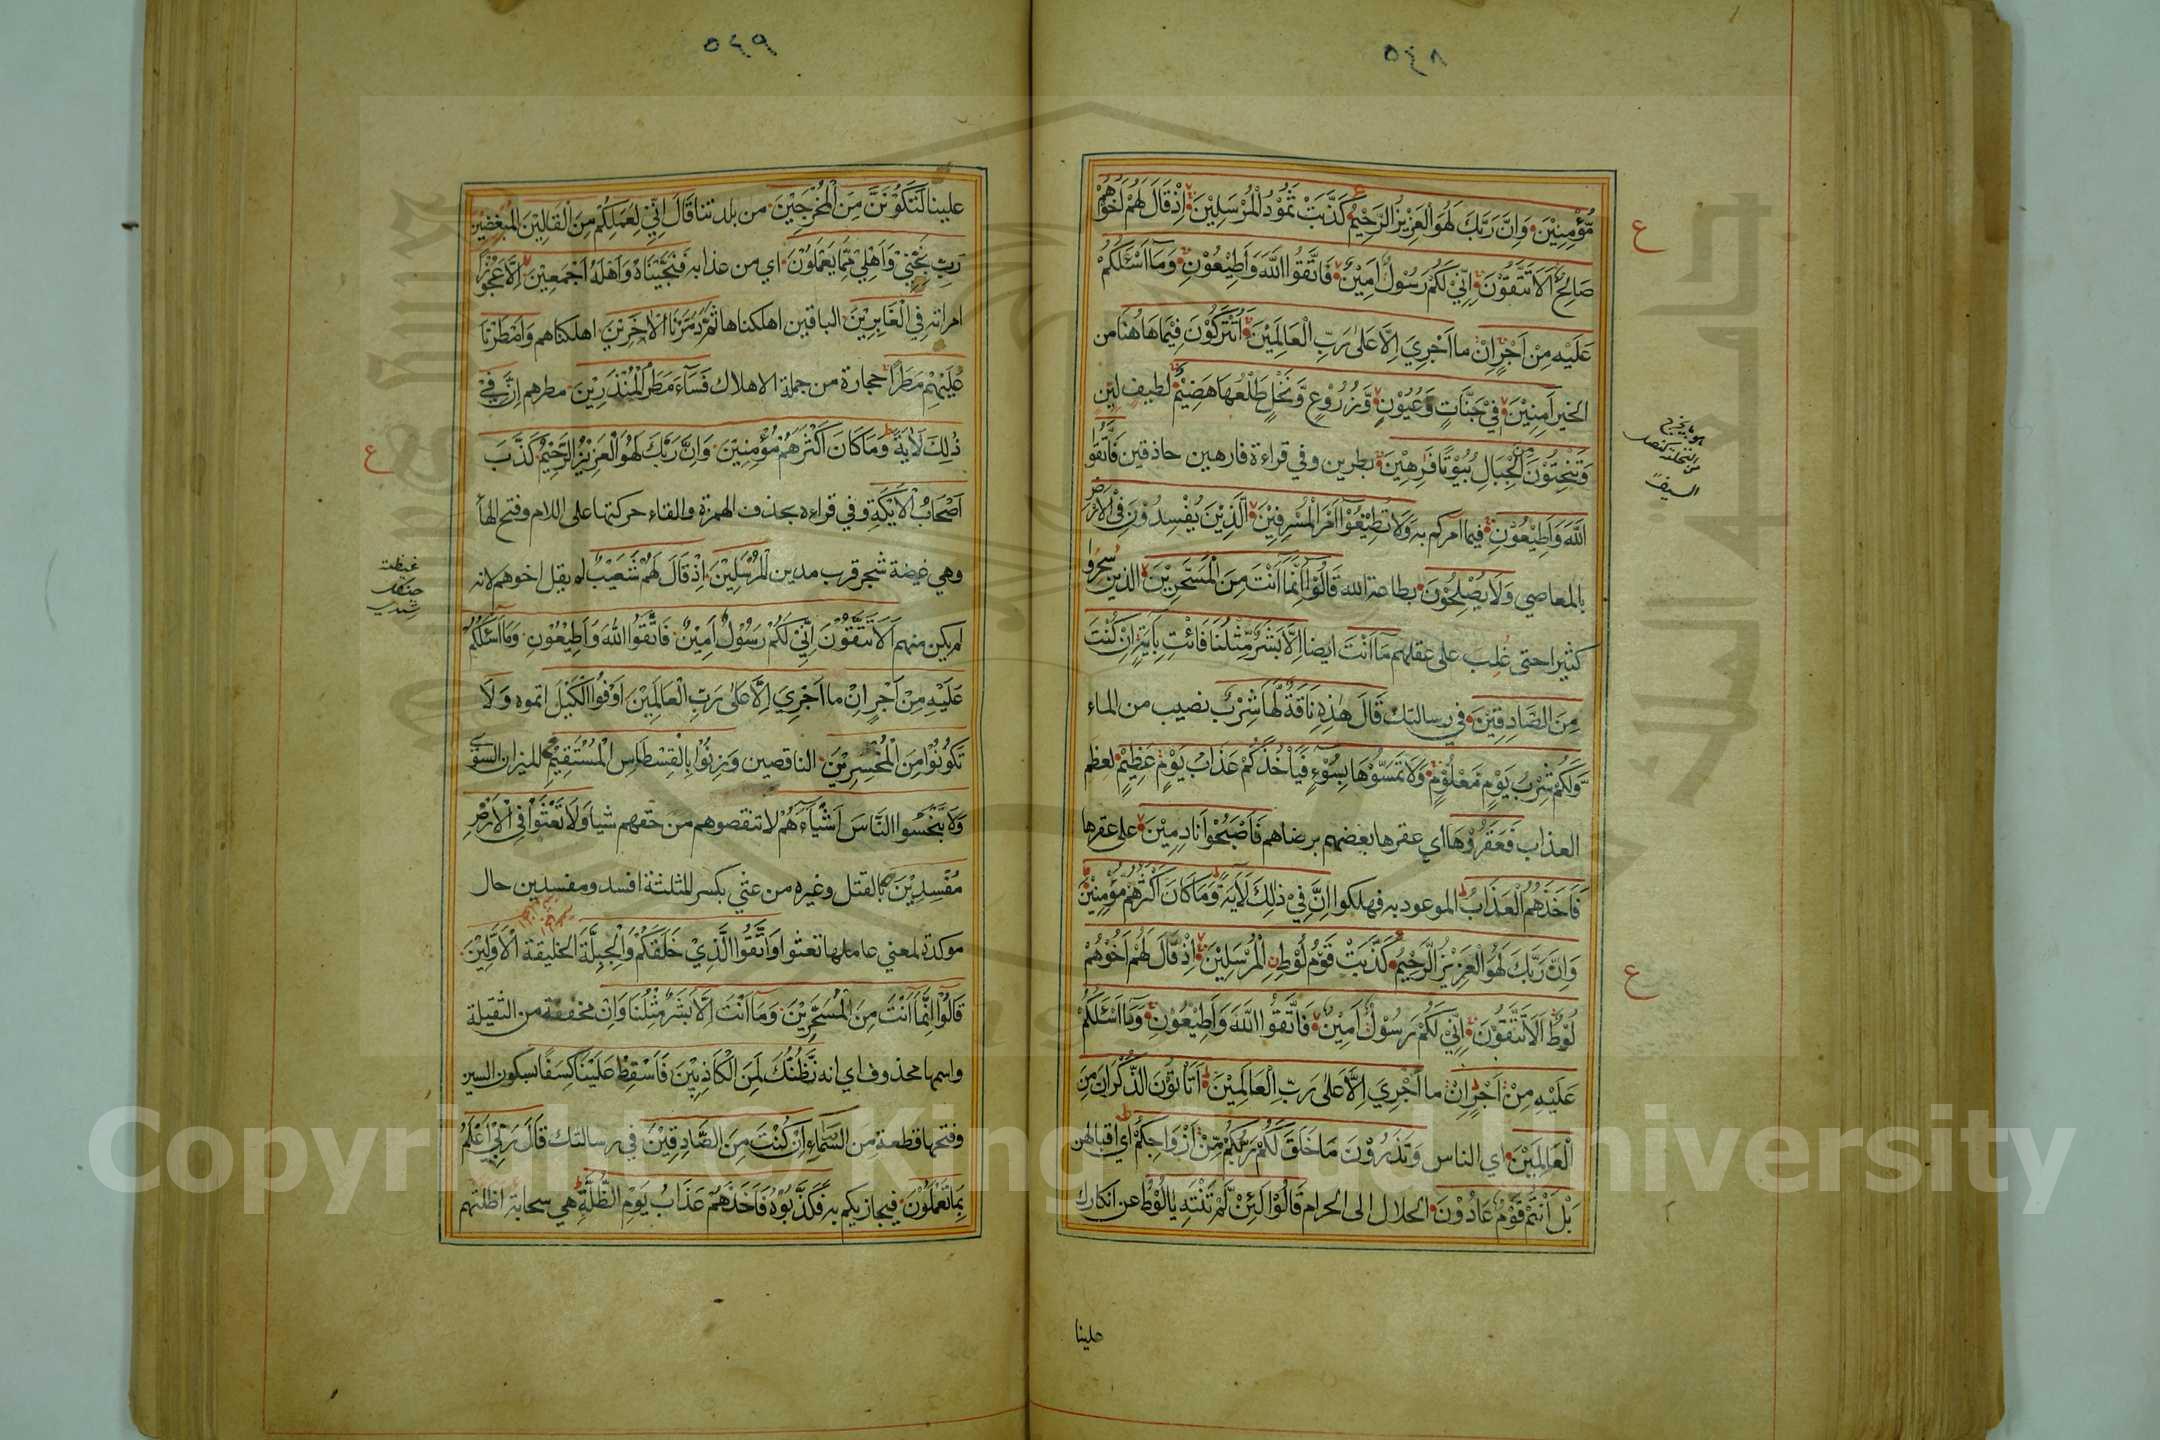 ٥٤٨
مُؤْمِنِيْنَ وَاِنَّ رَبَّكَ لَهُوَ الْعَزِيْزُ الرَّحِيْمُ كَذَّبَتْ ثَمُوْدُ الْمُرْسَلِيْنَ اِذْ قَالَ لَهُمْ اَخُوْهُمْ
صَالِحٌ اَلَا تَتَّقُوْنَ اِنِّيْ لَكُمْ رَسُوْلٌ اَمِيْنٌ فَاتَّقُوا اللّٰهَ وَاَطِيْعُوْنِ وَمَا اَسْئَلُكُمْ
عَلَيْهِ مِنْ اَجْرٍ اِنْ ما اَجْرِيَ اِلَّا عَلٰى رَبِّ الْعَالَمِيْنَ اَتُتْرَكُوْنَ فِيْمَا هَاهُنَا من
الخير آمِنِيْنَ فِيْ جَنَّاتٍ وَعُيُوْنٍ وَّزُرُوْعٍ وَّنَخْلٍ طَلْعُهَا هَضِيْمٌ لطيف لين
وَتَنْحِتُوْنَ مِنَ الْجِبَالِ بُيُوْتًا فَرِهِيْنَ بطرين وفي قراءة فارهين حاذقين فَاتَّقُوا
اللّٰهَ وَاَطِيْعُوْنِ فيما امركم به وَلَا تُطِيْعُوْا اَمْرَ الْمُسْرِفِيْنَ الَّذِيْنَ يُفْسِدُوْنَ فِي الْاَرْضِ
بالمعاصي وَلَا يُصْلِحُوْنَ بطاعة الله قَالُوْا اِنَّمَا اَنْتَ مِنَ الْمُسَحَّرِيْنَ الذين سحروا
كثيرا حتى غلب على عقلهم مَا اَنْتَ ايضا اِلَّا بَشَرٌ مِّثْلُنَا فَأْتِ بِآيَةٍ اِنْ كُنْتَ
مِنَ الصَّادِقِيْنَ في رسالتك قَالَ هٰذِهٖ نَاقَةٌ لَّهَا شِرْبٌ نصيب من الماء
وَّلَكُمْ شِرْبُ يَوْمٍ مَّعْلُوْمٍ وَلَا تَمَسُّوْهَا بِسُوْءٍ فَيَأْخُذَكُمْ عَذَابُ يَوْمٍ عَظِيْمٍ لعظم
العذاب فَعَقَرُوْهَا اي عقرها بعضهم برضاهم فَاَصْبَحُوْا نَادِمِيْنَ على عقرها
فَاَخَذَهُمُ الْعَذَابُ الموعود به فهلكوا اِنَّ فِيْ ذٰلِكَ لَاٰيَةً وَمَا كَانَ اَكْثَرُهُمْ مُّؤْمِنِيْنَ
وَاِنَّ رَبَّكَ لَهُوَ الْعَزِيْزُ الرَّحِيْمُ كَذَّبَتْ قَوْمُ لُوْطِنِ الْمُرْسَلِيْنَ اِذْ قَالَ لَهُمْ اَخُوْهُمْ
لُوْطٌ اَلَا تَتَّقُوْنَ اِنِّيْ لَكُمْ رَسُوْلٌ اَمِيْنٌ فَاتَّقُوا اللّٰهَ وَاَطِيْعُوْنِ وَمَا اَسْئَلُكُمْ
عَلَيْهِ مِنْ اَجْرٍ اِنْ ما اَجْرِيَ اِلَّا عَلٰى رَبِّ الْعَالَمِيْنَ اَتَأْتُوْنَ الذُّكْرَانَ مِنَ
الْعَالَمِيْنَ اي الناس وَتَذَرُوْنَ مَا خَلَقَ لَكُمْ رَبُّكُمْ مِّنْ اَزْوَاجِكُمْ اي اقبالهن
بَلْ اَنْتُمْ قَوْمٌ عَادُوْنَ الحلال الى الحرام قَالُوْا لَئِنْ لَّمْ تَنْتَهِ يَا لُوْطُ عن انكارك
ع
هو ما يخرج
من النخلة كنصل
السيف
ع
علينا
٥٤٩
علينا لَتَكُوْنَنَّ مِنَ الْمُخْرَجِيْنَ من بلدتنا قَالَ اِنِّيْ لِعَمَلِكُمْ مِنَ الْقَالِيْنَ المبغضين
رَبِّ نَجِّنِيْ وَاَهْلِيْ مِمَّا يَعْمَلُوْنَ اي من عذابه فَنَجَّيْنَاهُ وَاَهْلَهُ اَجْمَعِيْنَ اِلَّا عَجُوْزًا
امراته فِي الْغَابِرِيْنَ الباقين اهلكناها ثُمَّ دَمَّرْنَا الْاٰخَرِيْنَ اهلكناهم وَاَمْطَرْنَا
عَلَيْهِمْ مَّطَرًا حجارة من جملة الاهلاك فَسَآءَ مَطَرُ الْمُنْذَرِيْنَ مطرهم اِنَّ فِيْ
ذٰلِكَ لَاٰيَةً وَمَا كَانَ اَكْثَرُهُمْ مُّؤْمِنِيْنَ وَاِنَّ رَبَّكَ لَهُوَ الْعَزِيْزُ الرَّحِيْمُ كَذَّبَ
اَصْحَابُ الْاَيْكَةِ وفي قراءة بحذف الهمزة والقاء حركتها على اللام وفتح الهأ
وهي غيضة شجر قرب مدين الْمُرْسَلِيْنَ اِذْ قَالَ لَهُمْ شُعَيْبٌ لم يقل اخوهم لانه
لم يكن منهم اَلَا تَتَّقُوْنَ اِنِّيْ لَكُمْ رَسُوْلٌ اَمِيْنٌ فَاتَّقُوا اللّٰهَ وَاَطِيْعُوْنِ وَمَا اَسْئَلُكُمْ
عَلَيْهِ مِنْ اَجْرٍ اِنْ ما اَجْرِيَ اِلَّا عَلٰى رَبِّ الْعَالَمِيْنَ اَوْفُوا الْكَيْلَ اتموه وَلَا
تَكُوْنُوْا مِنَ الْمُخْسِرِيْنَ الناقصين وَزِنُوْا بِالْقِسْطَاسِ الْمُسْتَقِيْمِ الميزان السوي
وَلَا تَبْخَسُوا النَّاسَ اَشْيَآءَهُمْ لا تنقصوهم من حقهم شيا وَلَا تَعْثَوْا فِي الْاَرْضِ
مُفْسِدِيْنَ بالقتل وغيره من عثي بكسر المثلثة افسد ومفسدين حال
موكدة لمعني عاملها تعثوا وَاتَّقُوا الَّذِيْ خَلَقَكُمْ وَالْجِبِلَّةَ الخليقة الْاَوَّلِيْنَ
قَالُوْا اِنَّمَا اَنْتَ مِنَ الْمُسَحَّرِيْنَ وَمَا اَنْتَ اِلَّا بَشَرٌ مِّثْلُنَا وَاِنْ مخففة من الثقيلة
واسمها محذوف اي انه نَّظُنُّكَ لَمِنَ الْكَاذِبِيْنَ فَاَسْقِطْ عَلَيْنَا كِسَفًا بسكون السين
وفتحها قطعة مِنَ السَّمَآءِ اِنْ كُنْتَ مِنَ الصَّادِقِيْنَ في رسالتك قَالَ رَبِّيْ اَعْلَمُ
بِمَا تَعْمَلُوْنَ فيجازيكم به فَكَذَّبُوْهُ فَاَخَذَهُمْ عَذَابُ يَوْمِ الظُّلَّةِ هي سحابة اظلتهم
ع
Copyright © King Saud University